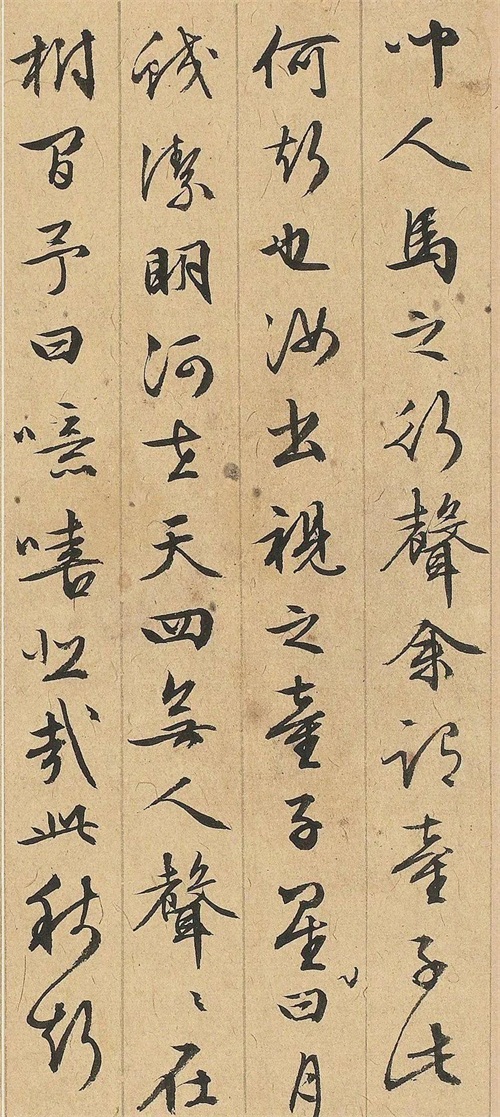 聞人馬之行聲余謂童子此
何聲也汝出視之童子星曰月
皎潔明河在天四無人聲〻在
樹間予曰噫嘻悲哉此秋聲